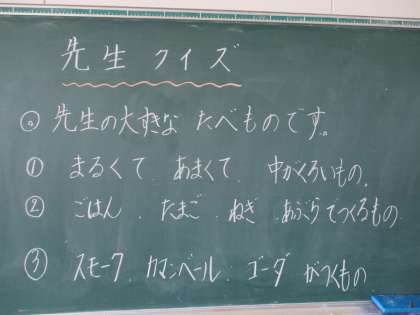 先生クイズ
◎ 先生の大すきな たべものです。
① まるくて、あまくて、中がくろいもの。
② ごはん、たまご、ねぎ、あぶらでつくるもの
③ スモーク、カマンベール、ゴーダ がつくもの